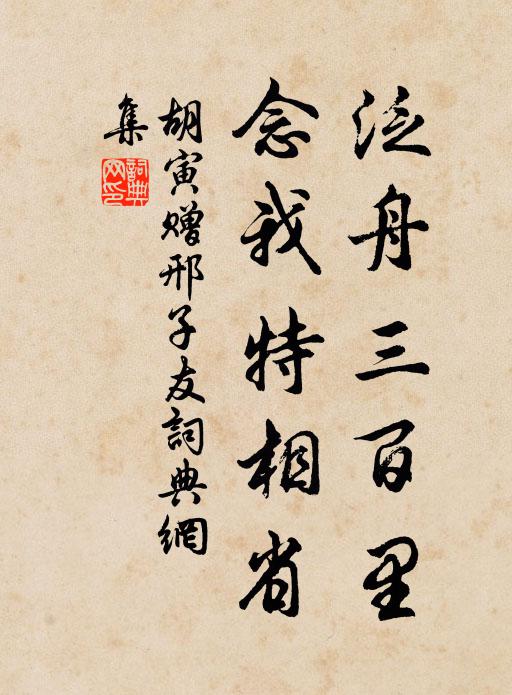 泛舟三百里
念我特相省
胡寅赠邢子友詞典網
集
詞典
网印